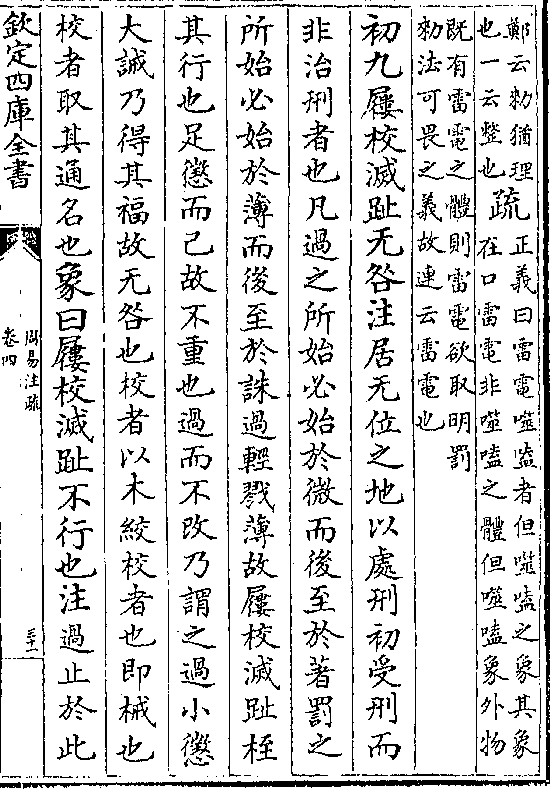 鄭云勑猶理
也一云整也
疏
正義曰雷電噬嗑者但噬嗑之象其象
在口雷電非噬嗑之體但噬嗑象外物
既有雷電之體則雷電欲取明罰
勑法可畏之義故連云雷電也
初九屨校滅趾无咎注居无位之地以處刑初受刑而
非治刑者也凡過之所始必始於微而後至於著罰之
所始必始於薄而後至於誅過輕戮薄故屨校滅趾桎
其行也足懲而已故不重也過而不改乃謂之過小懲
大誡乃得其福故无咎也校者以木絞校者也即械也
校者取其通名也象曰屨校滅趾不行也注過止於此
欽定四庫全書
周易注疏
卷四
三十一